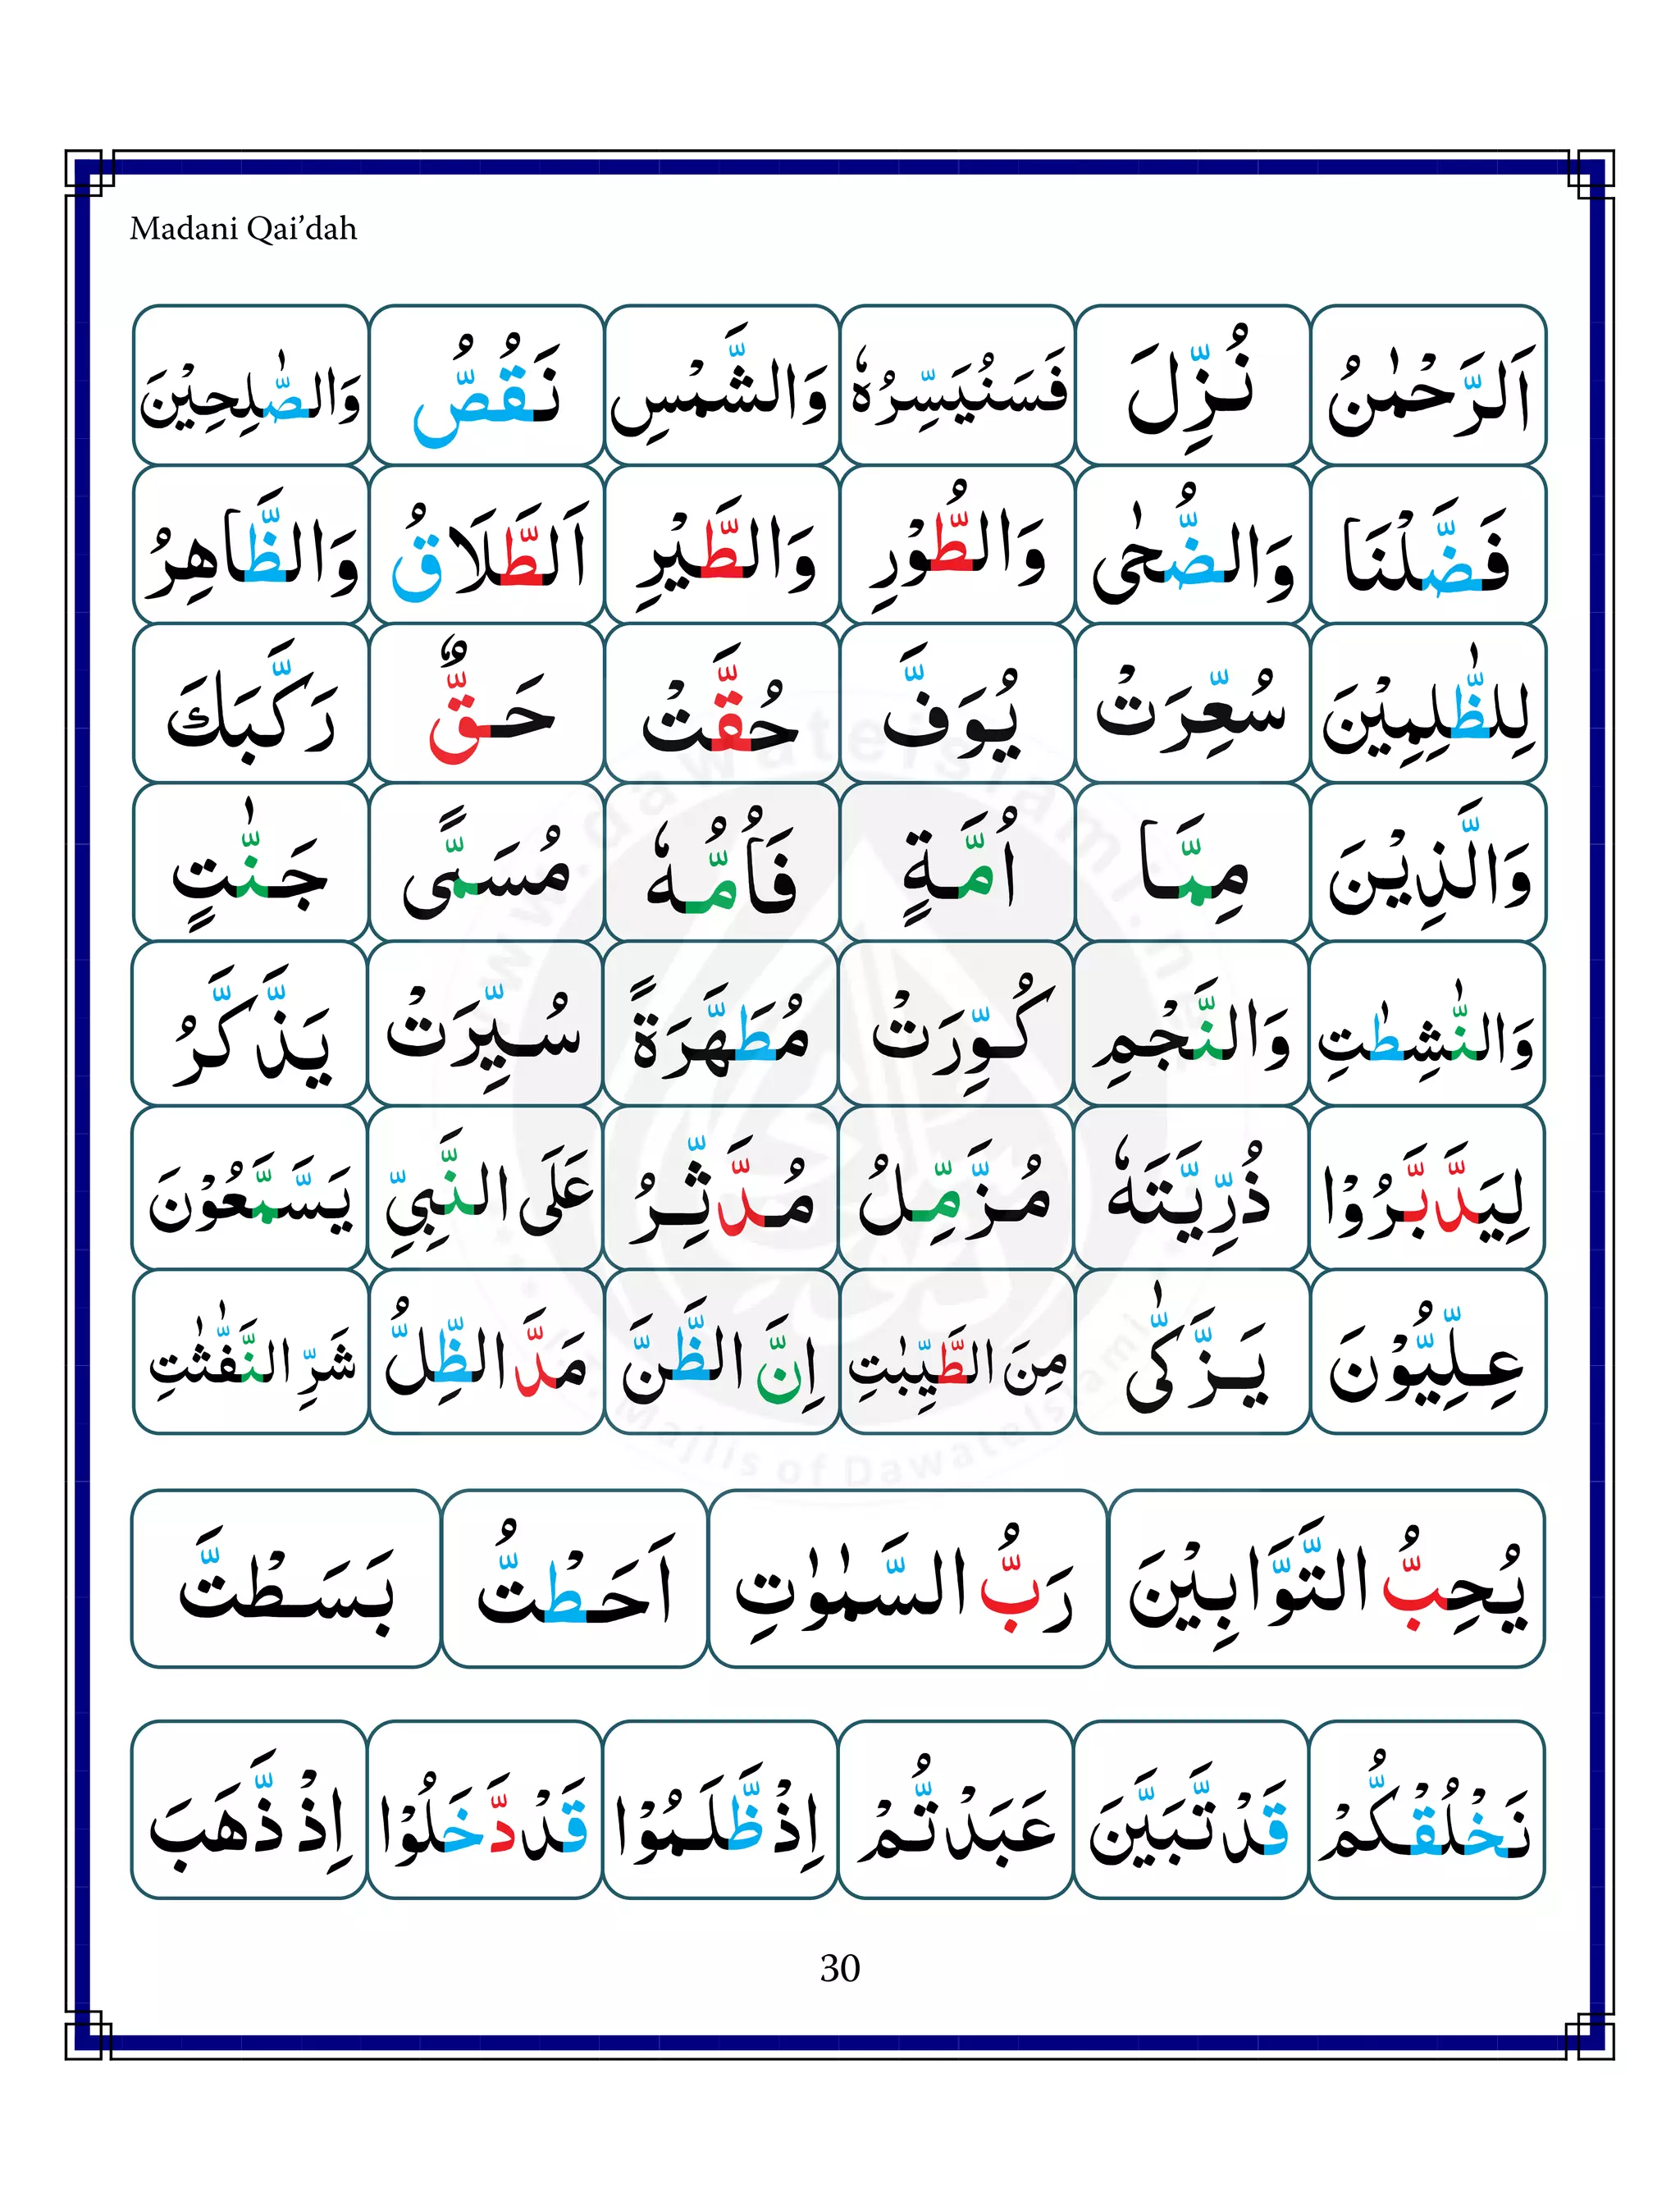 Madani Qai’dah
اَلرَّحْمٰنُ نُزِّلَ فَسَنُيَسِّرُهٗ وَالشَّمْسِ نَقُصُّ وَالصّٰلِحِيْنَ
فَضَّلْنَا وَالضُّحٰى وَالطُّوْرِ وَالطَّيْرِ اَلطَّلَاقُ وَالظَّاهِرُ
لِلظّٰلِمِيْنَ سُعِّرَتْ يُوَفَّ حُقَّتْ حَقٌّ رَكَّبَكَ
وَالَّذِيْنَ مِمَّا اُمَّةٍ فَاُمُّهٗ مُسَمًّى جَنّٰتٍ
وَالنّٰشِطٰتِ وَالنَّجْمِ كُوِّرَتْ مُطَهَّرَةً سُيِّرَتْ يَذَّكَّرُ
لِيَدَّبَّرُوْا ذُرِّيَّتَهٗ مُزَّمِّلُ مُدَّثِّرُ عَلَى النَّبِيِّ يَسَّمَّعُوْنَ
عِلِّيُّوْنَ يَزَّكّٰى مِنَ الطَّيِّبٰتِ اِنَّ الظَّنَّ مَدَّ الظِّلُّ شَرِّ النَّفّٰثٰتِ
يُحِبُّ التَّوَّابِيْنَ رَبُّ السَّمٰوٰتِ اَحَطْتُّ بَسَطْتَّ
نَخْلُقْكُّمْ قَدْ تَّبَيَّنَ عَبَدْتُّمْ اِذْ ظَّلَمُوْا قَدْ دَّخَلُوْا اِذْ ذَّهَبَ
30
www.dawateislami.net
Majlis of DawateIslami